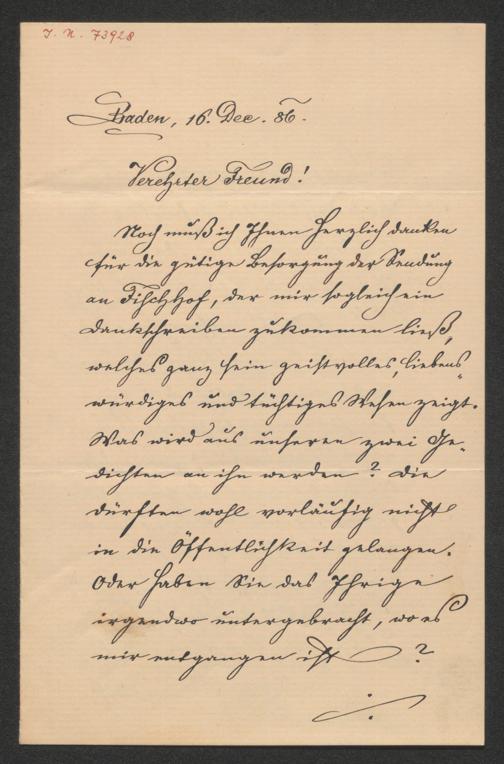 I. N. 73928
Baden, 16. Dec. 86.
Verehrter Freund!
Noch muß ich Ihnen herzlich danken
für die gütige Besorgung der Sendung
an Fischhof, der mir sogleich ein
Dankschreiben zukommen ließ,
welches ganz sein geistvolles, liebens-
würdiges und tüchtiges Wesen zeigt.
Was wird aus unseren zwei Ge-
dichten an ihn werden? Die
dürften wohl vorläufig nicht
in die Öffentlichkeit gelangen.
Oder haben Sie das Ihrige
irgendwo untergebracht, wo es
mir entgangen ist?
./.